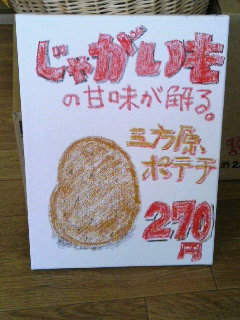 じゃがいも
の甘味が解る。
三方原、
ポテチ
270
円